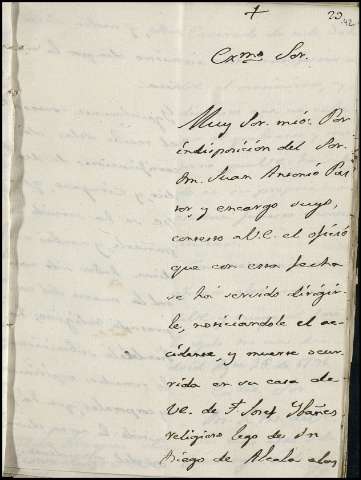 +
29
42
Exmo Sor.
Muy Sor. mió: Por
indisposición del Sor.
Dn. Juan Antonio Pas
tor, y encargo suyo,
contesto a V.E. el oficio
que con esta fecha
se há servido dirigir-
le, noticiandole el ac-
cidente, y muerte ocur-
rida en su casa de
VE. de F. Josef Ybañes
religioso lego de Sn
Diego de Alcala a las